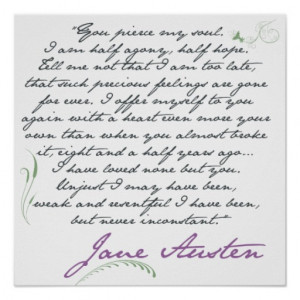 "You pierce my soul.
I am half agony, half hope.
Tell me not that I am too late,
that such precious feelings are gone
for ever. I offer myself to you
again with a heart even more your
own than when you almost broke
it, eight and a half years ago...
I have loved none but you.
Unjust I may have been,
weak and resentful I have been,
but never inconstant."
Jane Austen